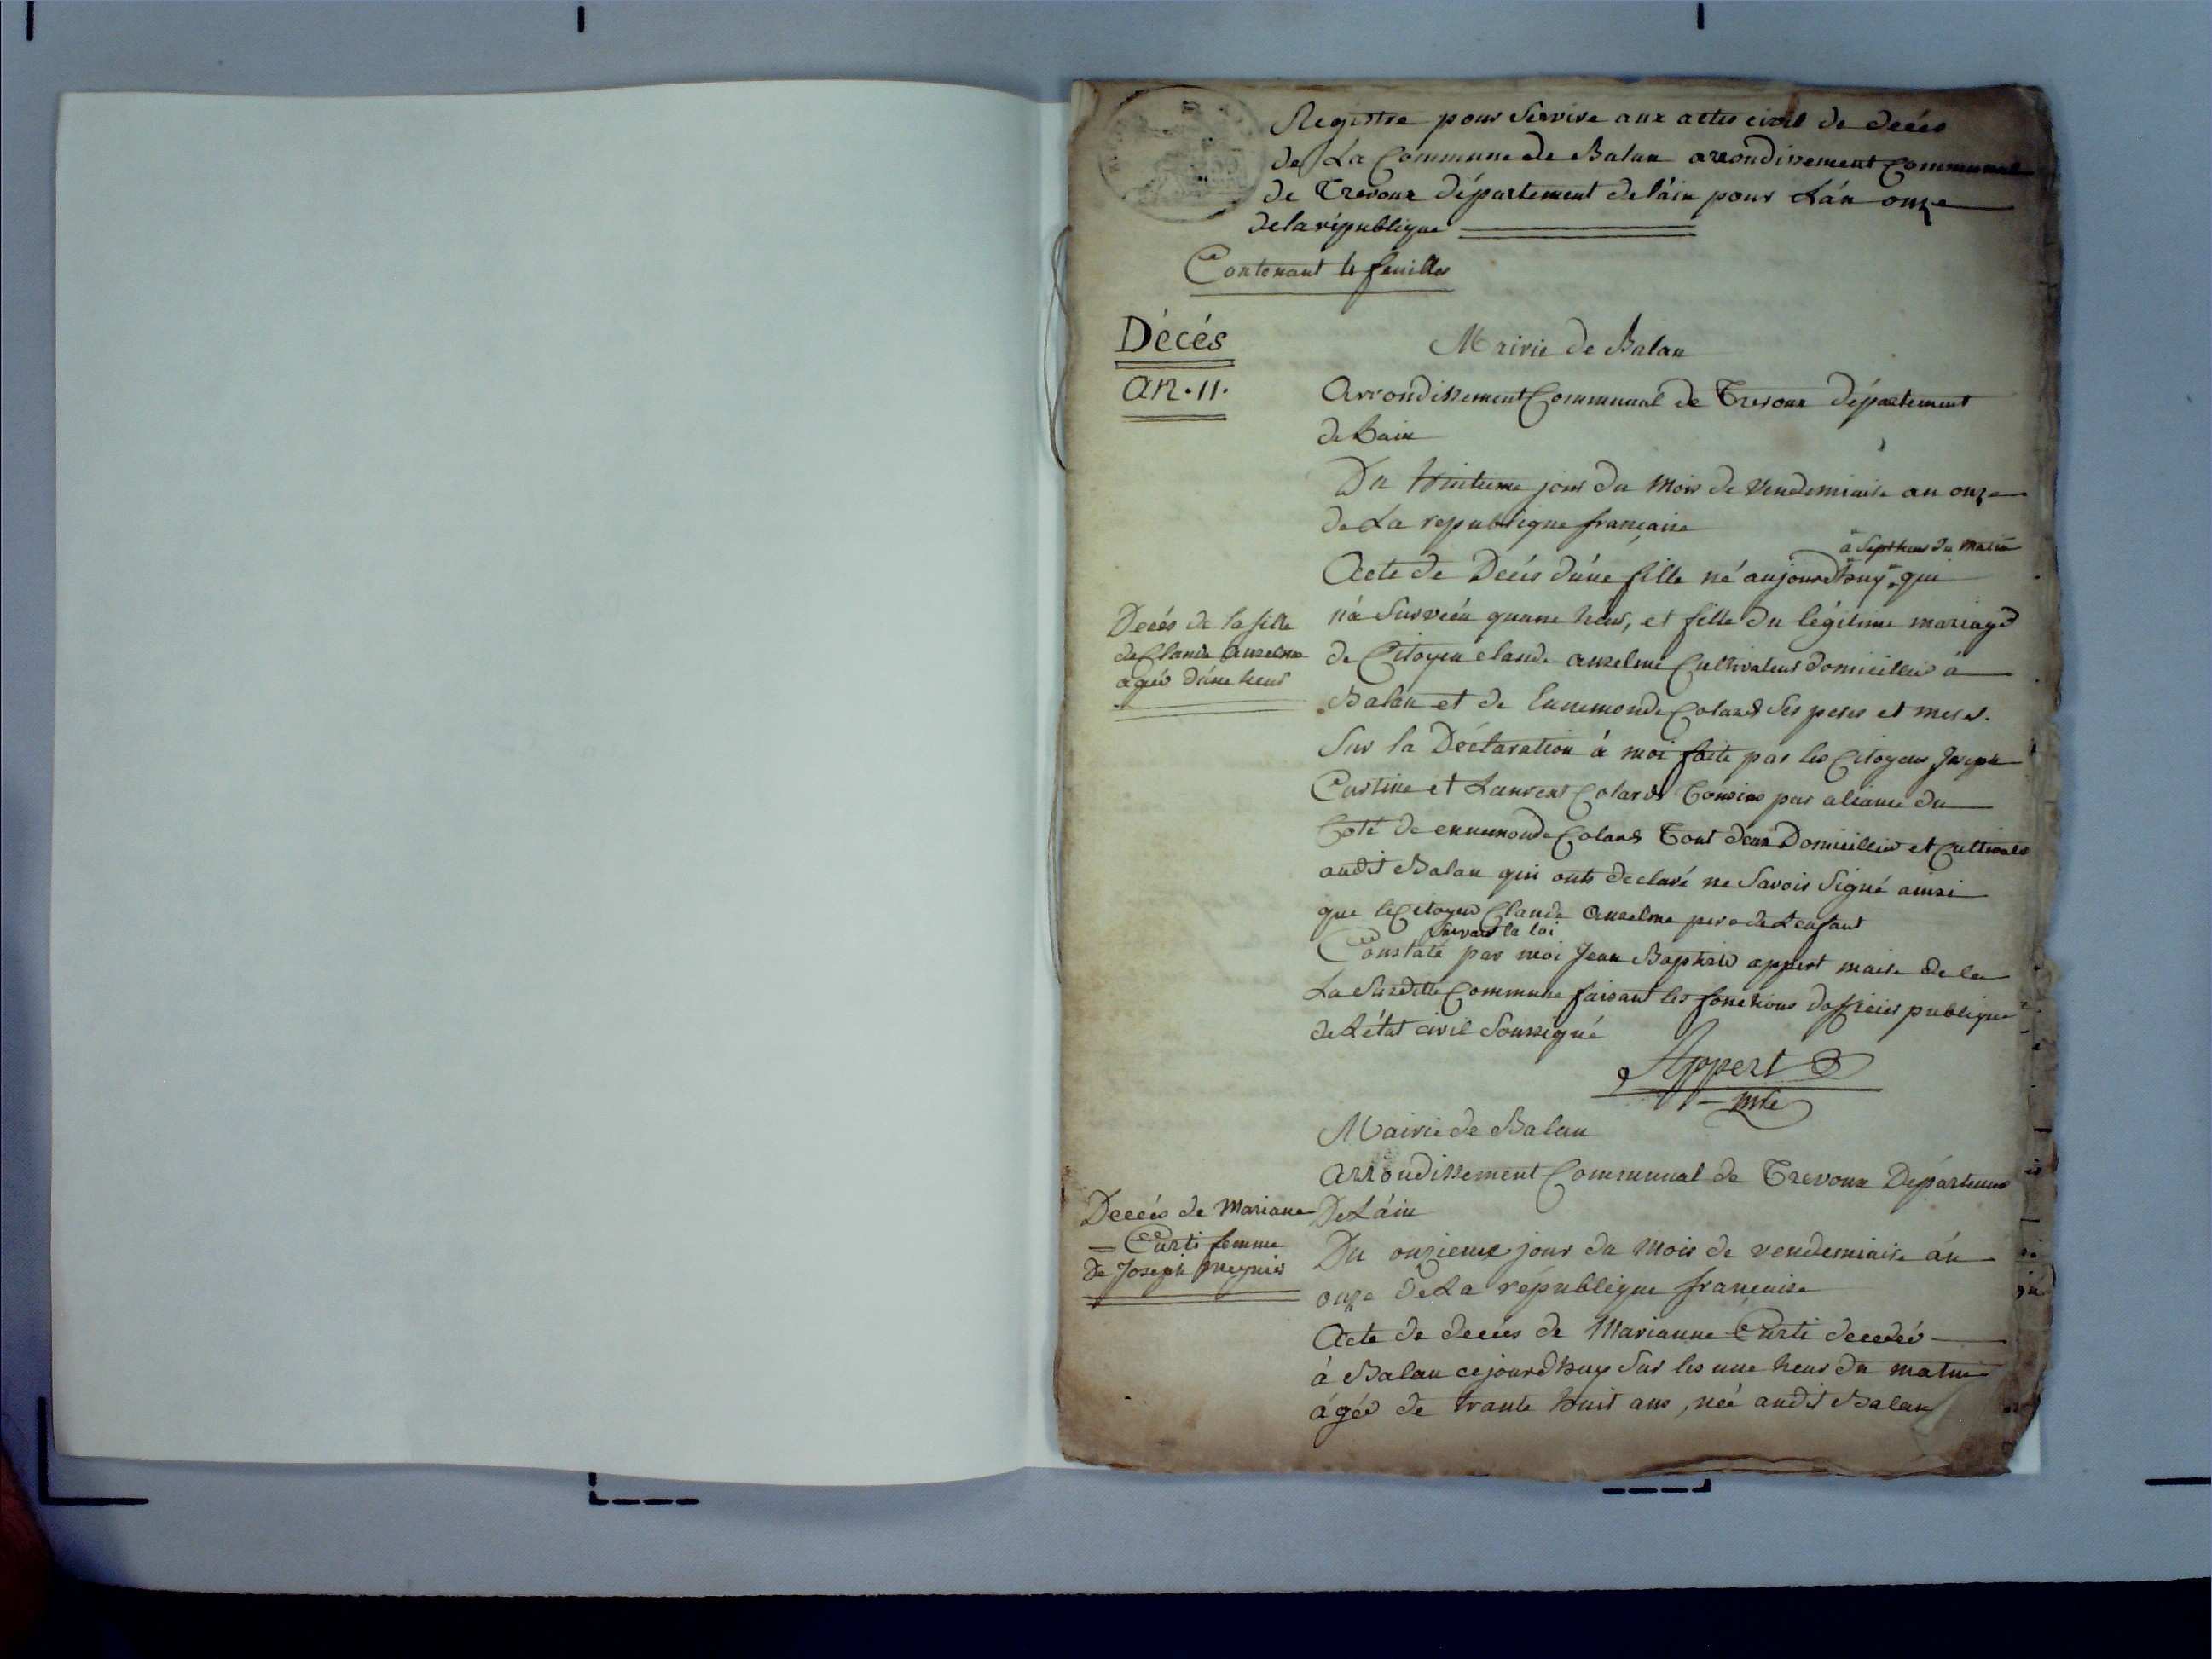 Registre pour Servire aux actes civil de decés
de La Commune de Balan arrondissement Communal
de Trevoux département de láin pour Lán onze
de la république
Contenant 4 feuilles
Décés
an. 11.
Mairie de Balan
Arrondissement Communal de Trevoux département
de Lain
Du huitieme jour du mois de Vendemiaire an onze
de La republique française
à Sept heur du matin
Acte de Decés dúne fille né aujourdhuy qui
ná Survécu quune héur, et fille du légitime mariage
de Citoyen claude anselme Cultivateur domicillié à
Balan et de Ennemonde Colard Ses peres et meres.
Decés de la fille
de Claude Anselme
agéé dúne heur
Sur la Déclaration à moi faite par les Citoyens Joseph
Curtine et Laurent Colard Cousins par aliance du
Coté de ennemonde Colard Tout deux Domicilliés et Cultivate
audit Balan qui onts declaré ne Savoir Signé ainsi
que le Citoyen Claude Anselme pere de Lenfant
Suivant la loi
Constaté par moi Jean Baptiste appert maire de la
La Susditte Commune faisant les fonctions dofficier publique
de Létat civil Soussigné
Appert
mre
Mairie de Balan
arrondissement Communal de Trevoux Départemen
De Láin
Decéés de Mariane
= Curti femme
de Joseph Meynier
Du onzieme jour du mois de vendemiaire án
onze de La république francaise
Acte de decées de Marianne Curti decedéé
á Balan cejourdhuy Sur les une heur du matin
ágéé de trante huit ans, néé audit Balan